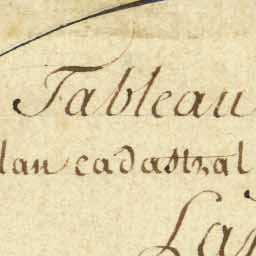 Tableau
lan cadastral
La